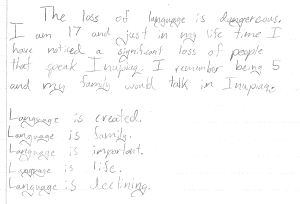 The loss of language is dangerous.
I am 17 and just in my life time I
have noticed a significant loss of people
that speak Inupiaq. I remember being 5
and my family would talk in Inupiaq.
Language is created.
Language is family.
Language is important.
Language is life.
Language is declining.